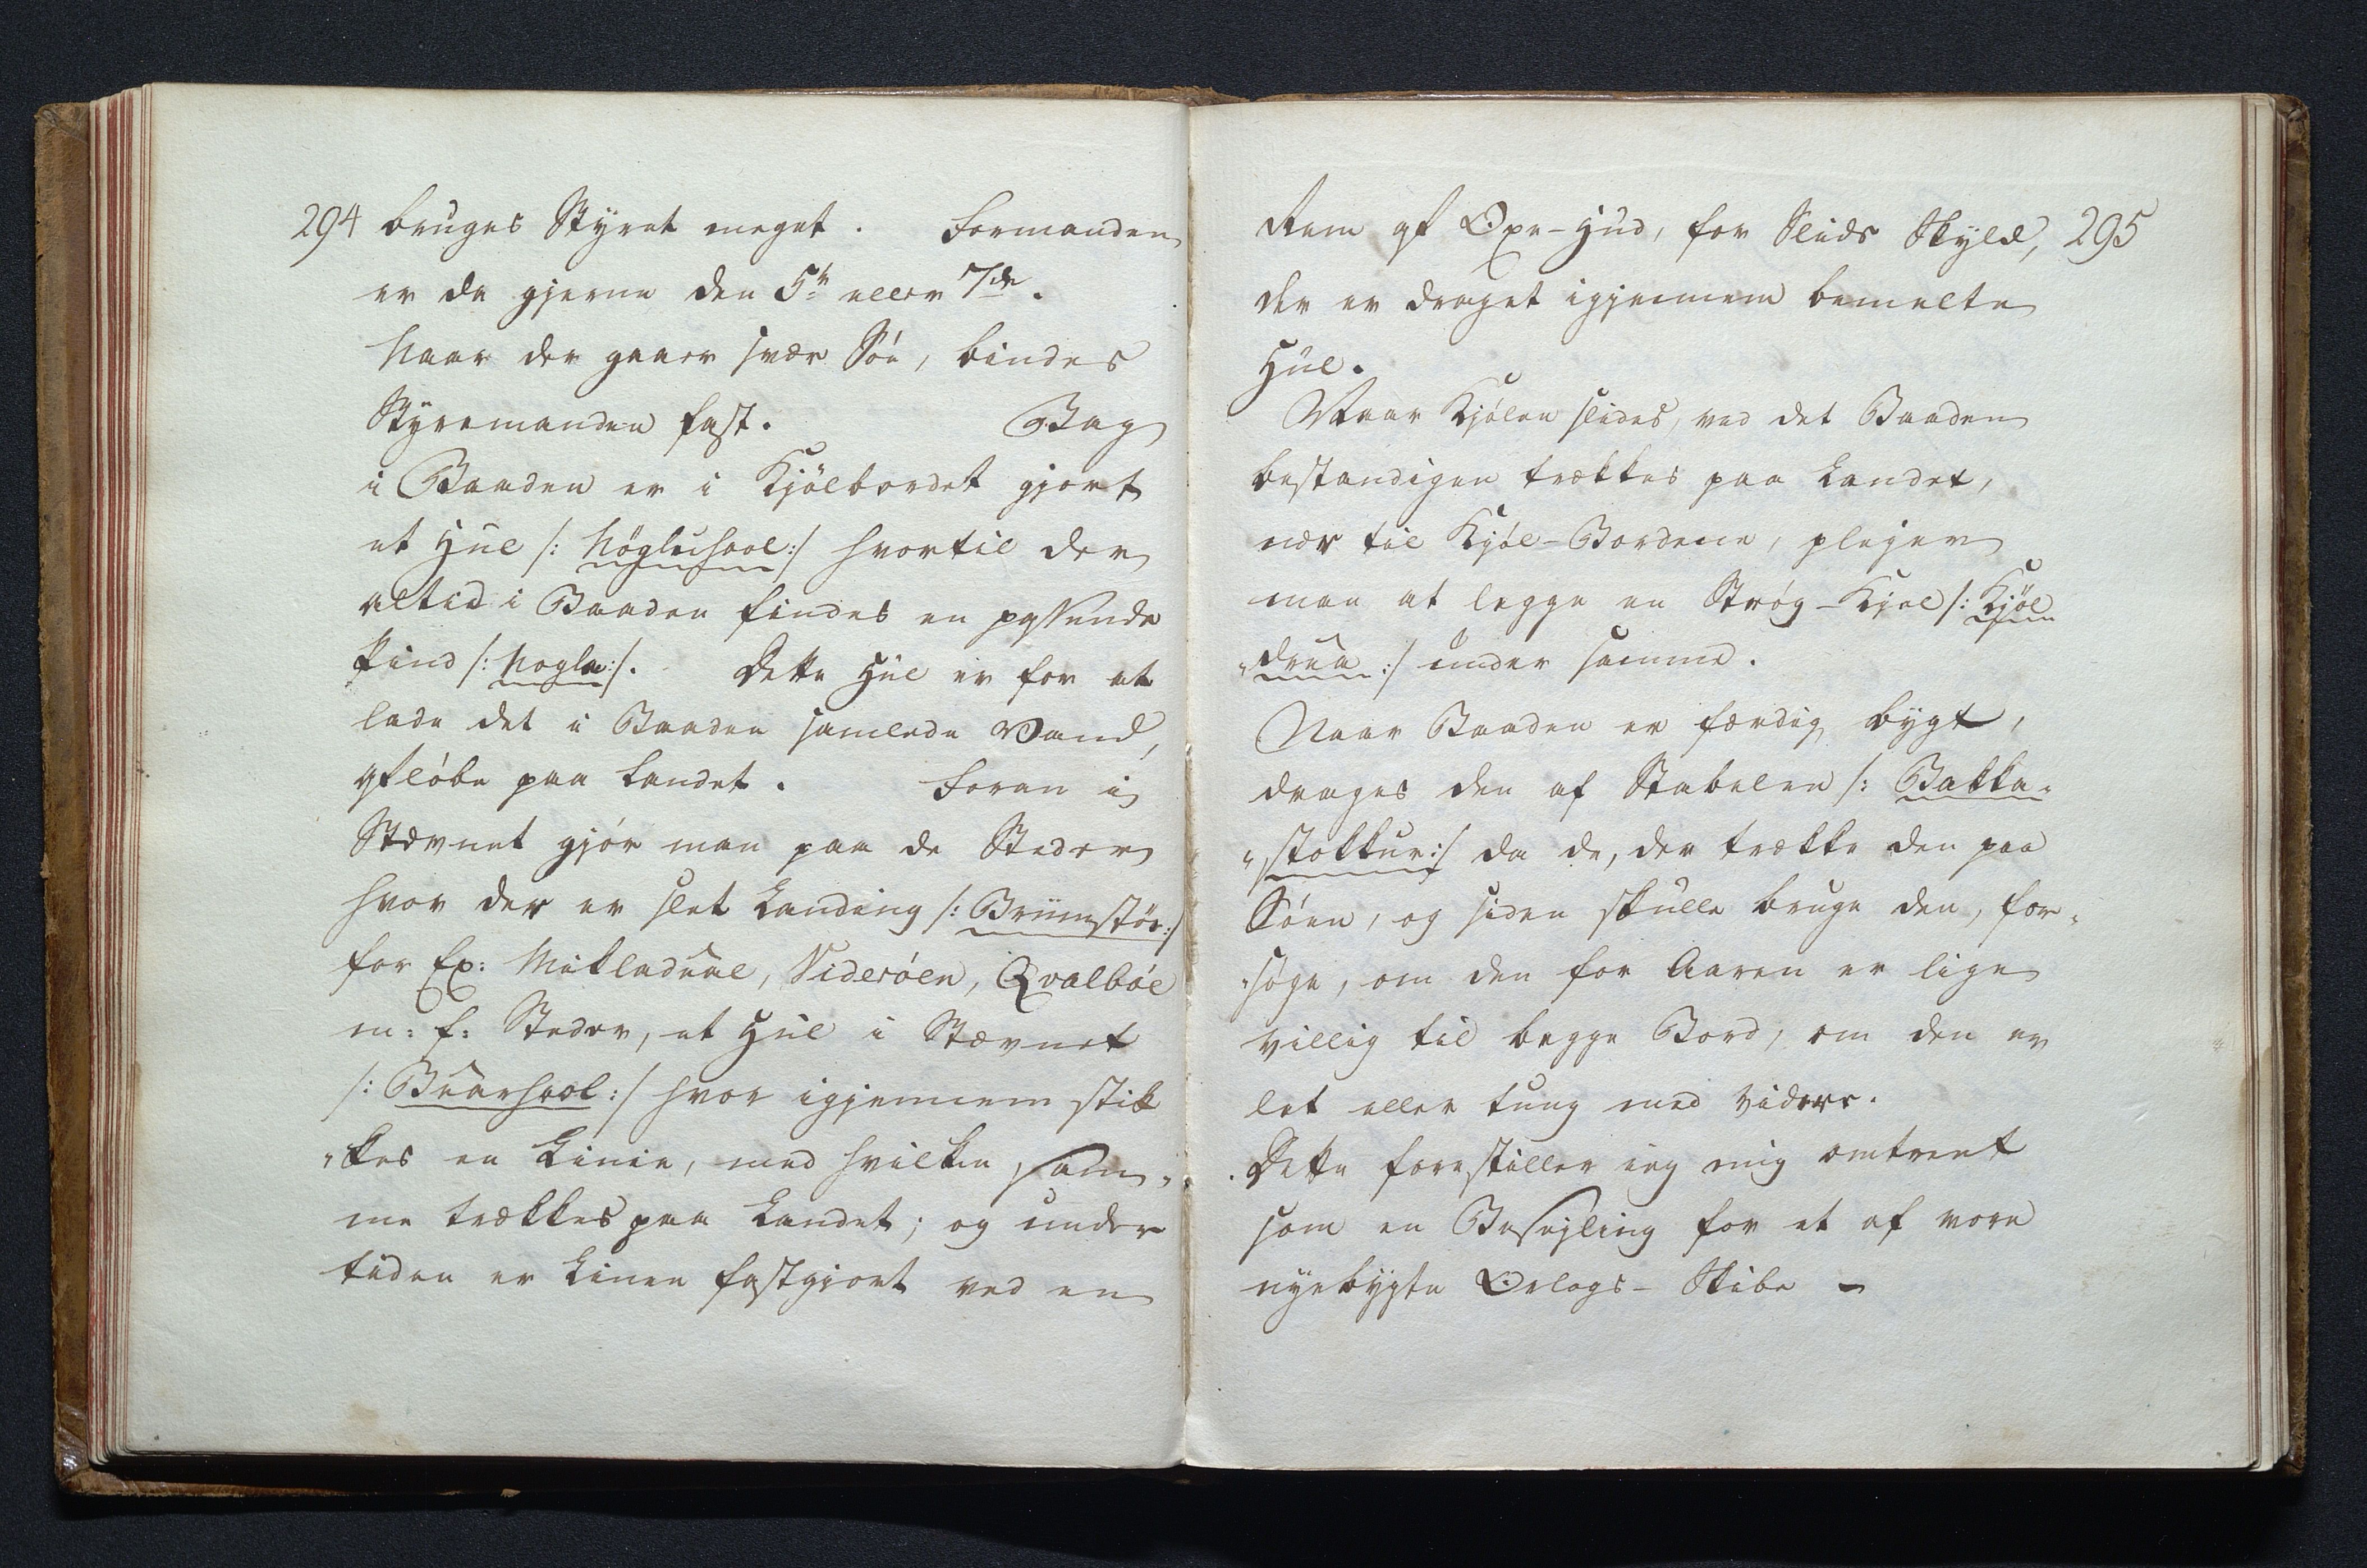 294 bruges Styret meget. Formanden
er da gjerne den 5te eller 7de.
Naar der gaaer svær Söe, bindes
Styremanden fast. Bag
i Baaden er i Kjölbordet gjort
et Hul /: Nögluhool :/ hvortil der
altid i Baaden findes en passende
Pind /: Nogla :/. Dette Hul er for at
lade det i Baaden samlede Vand,
afløbe paa Landet. Foran i
Stævnet gjör man paa de Steder
hvor der er slet Landing /: Brimstöe :/
for Ex: Mikladaal, Viderøen, Qvalböe
m: f: Steder, et Hul i Stævnet
/: Baarhool :/ hvor igjennem stik
"kes en Linie, med hvilken sam"
me trækkes paa Landet; og under
tiden er Linen fastgjort ved en
Rem af Oxe-Hud, for Slids Skyld, 295
der er draget igjennem bemelte
Hul.
Naar Kjölen slides, ved det Baaden
bestandigen trækkes paa Landet,
nær til Kjöl-Bordene, plejer
man at legge en Strög-Kjøl /: Kjöl
"draa :/ under samme.
Naar Baaden er færdig bygt,
drages den af Stabelen /: Bakka"
"stokkur :/ da de, der trække den paa
Söen, og siden skulle bruge den, for"
"söge, om den for Aaren er lige
villig til begge Bord, om den er
let eller tung med videre.
Dette forestiller ieg mig omtrent
som en Besejling for et af vore
nyebygte Orlogs-Skibe –